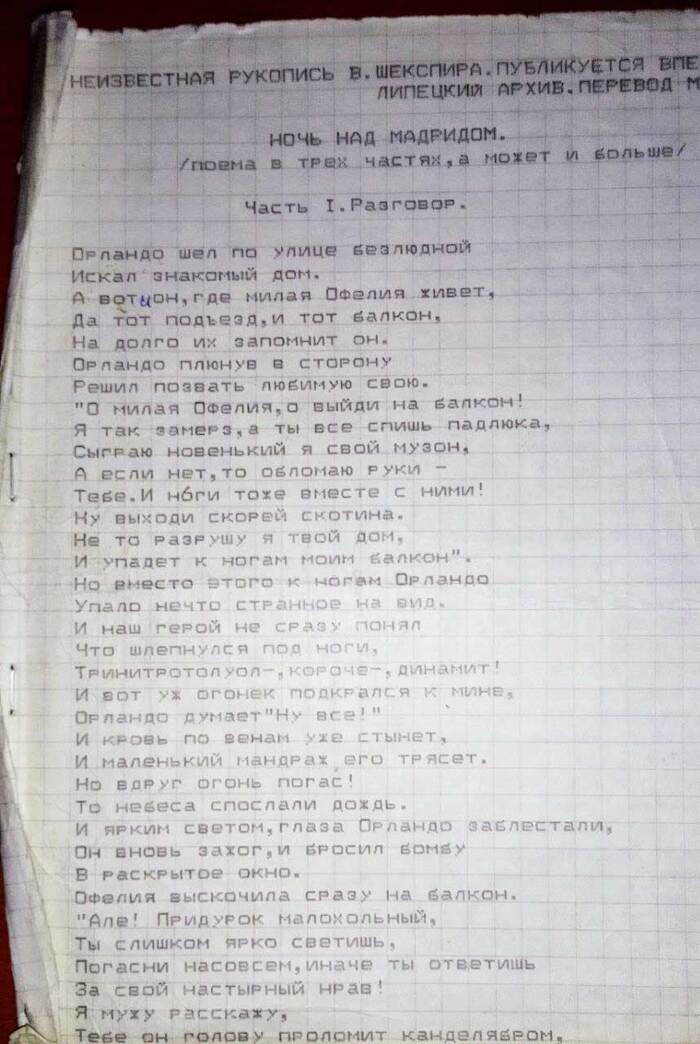 НЕИЗВЕСТНАЯ РУКОПИСЬ В.ШЕКСПИРА.ПУБЛИКУЕТСЯ ВПЕ
ЛИПЕЦКИЙ АРХИВ.ПЕРЕВОД М
НОЧЬ НАД МАДРИДОМ.
/поема в трех частях,а может и больше/
Часть I.Разговор.
Орландо шел по улице безлюдной
Искал знакомый дом.
А вот и он,где милая Офелия живет,
Да тот подъезд,и тот балкон,
На долго их запомнит он.
Орландо плюнув в сторону
Решил позвать любимую свою.
"О милая Офелия,о выйди на балкон!
Я так замерз,а ты все спишь падлюка,
Сыграю новенький я свой музон,
А если нет,то обломаю руки -
Тебе.И ноги тоже вместе с ними!
Ну выходи скорей скотина.
Не то разрушу я твой дом,
И упадет к ногам моим балкон".
Но вместо этого к ногам Орландо
Упало нечто странное на вид.
И наш герой не сразу понял
Что шлепнулся под ноги,
Тринитротолуол-,короче-,динамит!
И вот уж огонек подкрался к мине,
Орландо думает"Ну все!"
И кровь по венам уже стынет,
И маленький мандраж его трясет.
Но вдруг огонь погас!
То небеса спослали дождь.
И ярким светом,глаза Орландо заблестали,
Он вновь зажог,и бросил бомбу
В раскрытое окно.
Офелия выскочила сразу на балкон.
"Але! Придурок малохольный,
Ты слишком ярко светишь,
Погасни насовсем,иначе ты ответишь
За свой настырный нрав!
Я мужу расскажу,
Тебе он голову проломит канделябром,